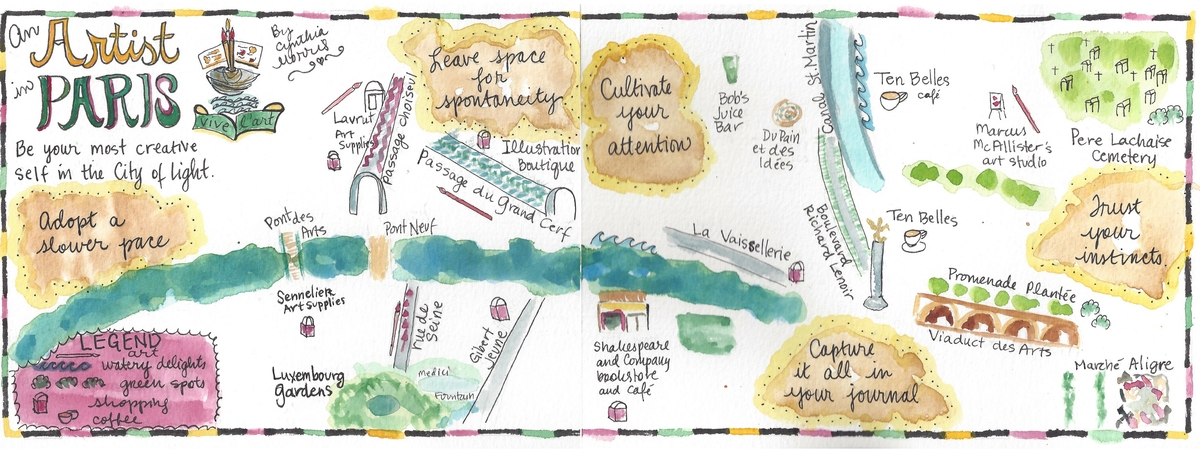 An
Artist
in
PARIS
By
Cynthia
Morris
vive l'art
Be your most creative
self in the City of Light.
Adopt a
slower pace
Lavrut
Art
Supplies
Passage Choiseul
Leave space
for
spontaneity
Illustration
Boutique
Passage du Grand Cerf
Pont des
Arts
Pont Neuf
Sennelier
Art Supplies
rue de
Seine
Gibert
Jeune
Luxembourg
Gardens
medici
Fountain
LEGEND
art
watery delights
green spots
shopping
coffee
Cultivate
your
attention
Bob's
Juice
Bar
Du Pain
et des
Idées
Canal St. Martin
Ten Belles
café
Marcus
McAllister's
art studio
Pere Lachaise
Cemetery
La Vaissellerie
Boulevard
Richard Lenoir
Ten Belles
Trust
your
instincts.
Promenade Plantée
Viaduct des Arts
Shakespeare
and Company
bookstore
and café
Capture
it all in
your journal
Marché Aligre